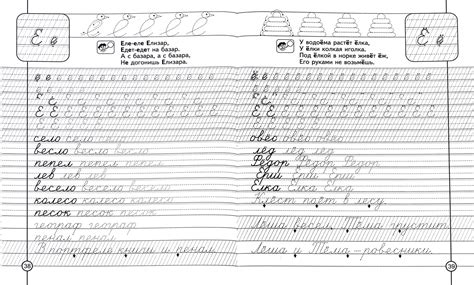 Ее
Еле-еле Елизар,
Едет-едет на базар.
А с базара, а с базара,
Не догонишь Елизара.
село село село
весло весло весло
пепел пепел пепел
лев лев лев
весело весело весело
колесо колесо колесо
песок песок песок
географ географ географ
пенал пенал
В портфеле книги и пенал.
38
Её
У водоёма растёт ёлка,
У ёлки колкая иголка.
Под ёлкой в норке живёт ёж,
Его руками не возьмёшь.
овёс овёс овёс
лёд лёд лёд
Фёдор Фёдор Фёдор
Ёрш Ёрш Ёрш
Ёлка Ёлка Ёлка
Клёст поёт в лесу.
Лёша весел, Тёма грустит.
Лёша и Тёма – ровесники.
39